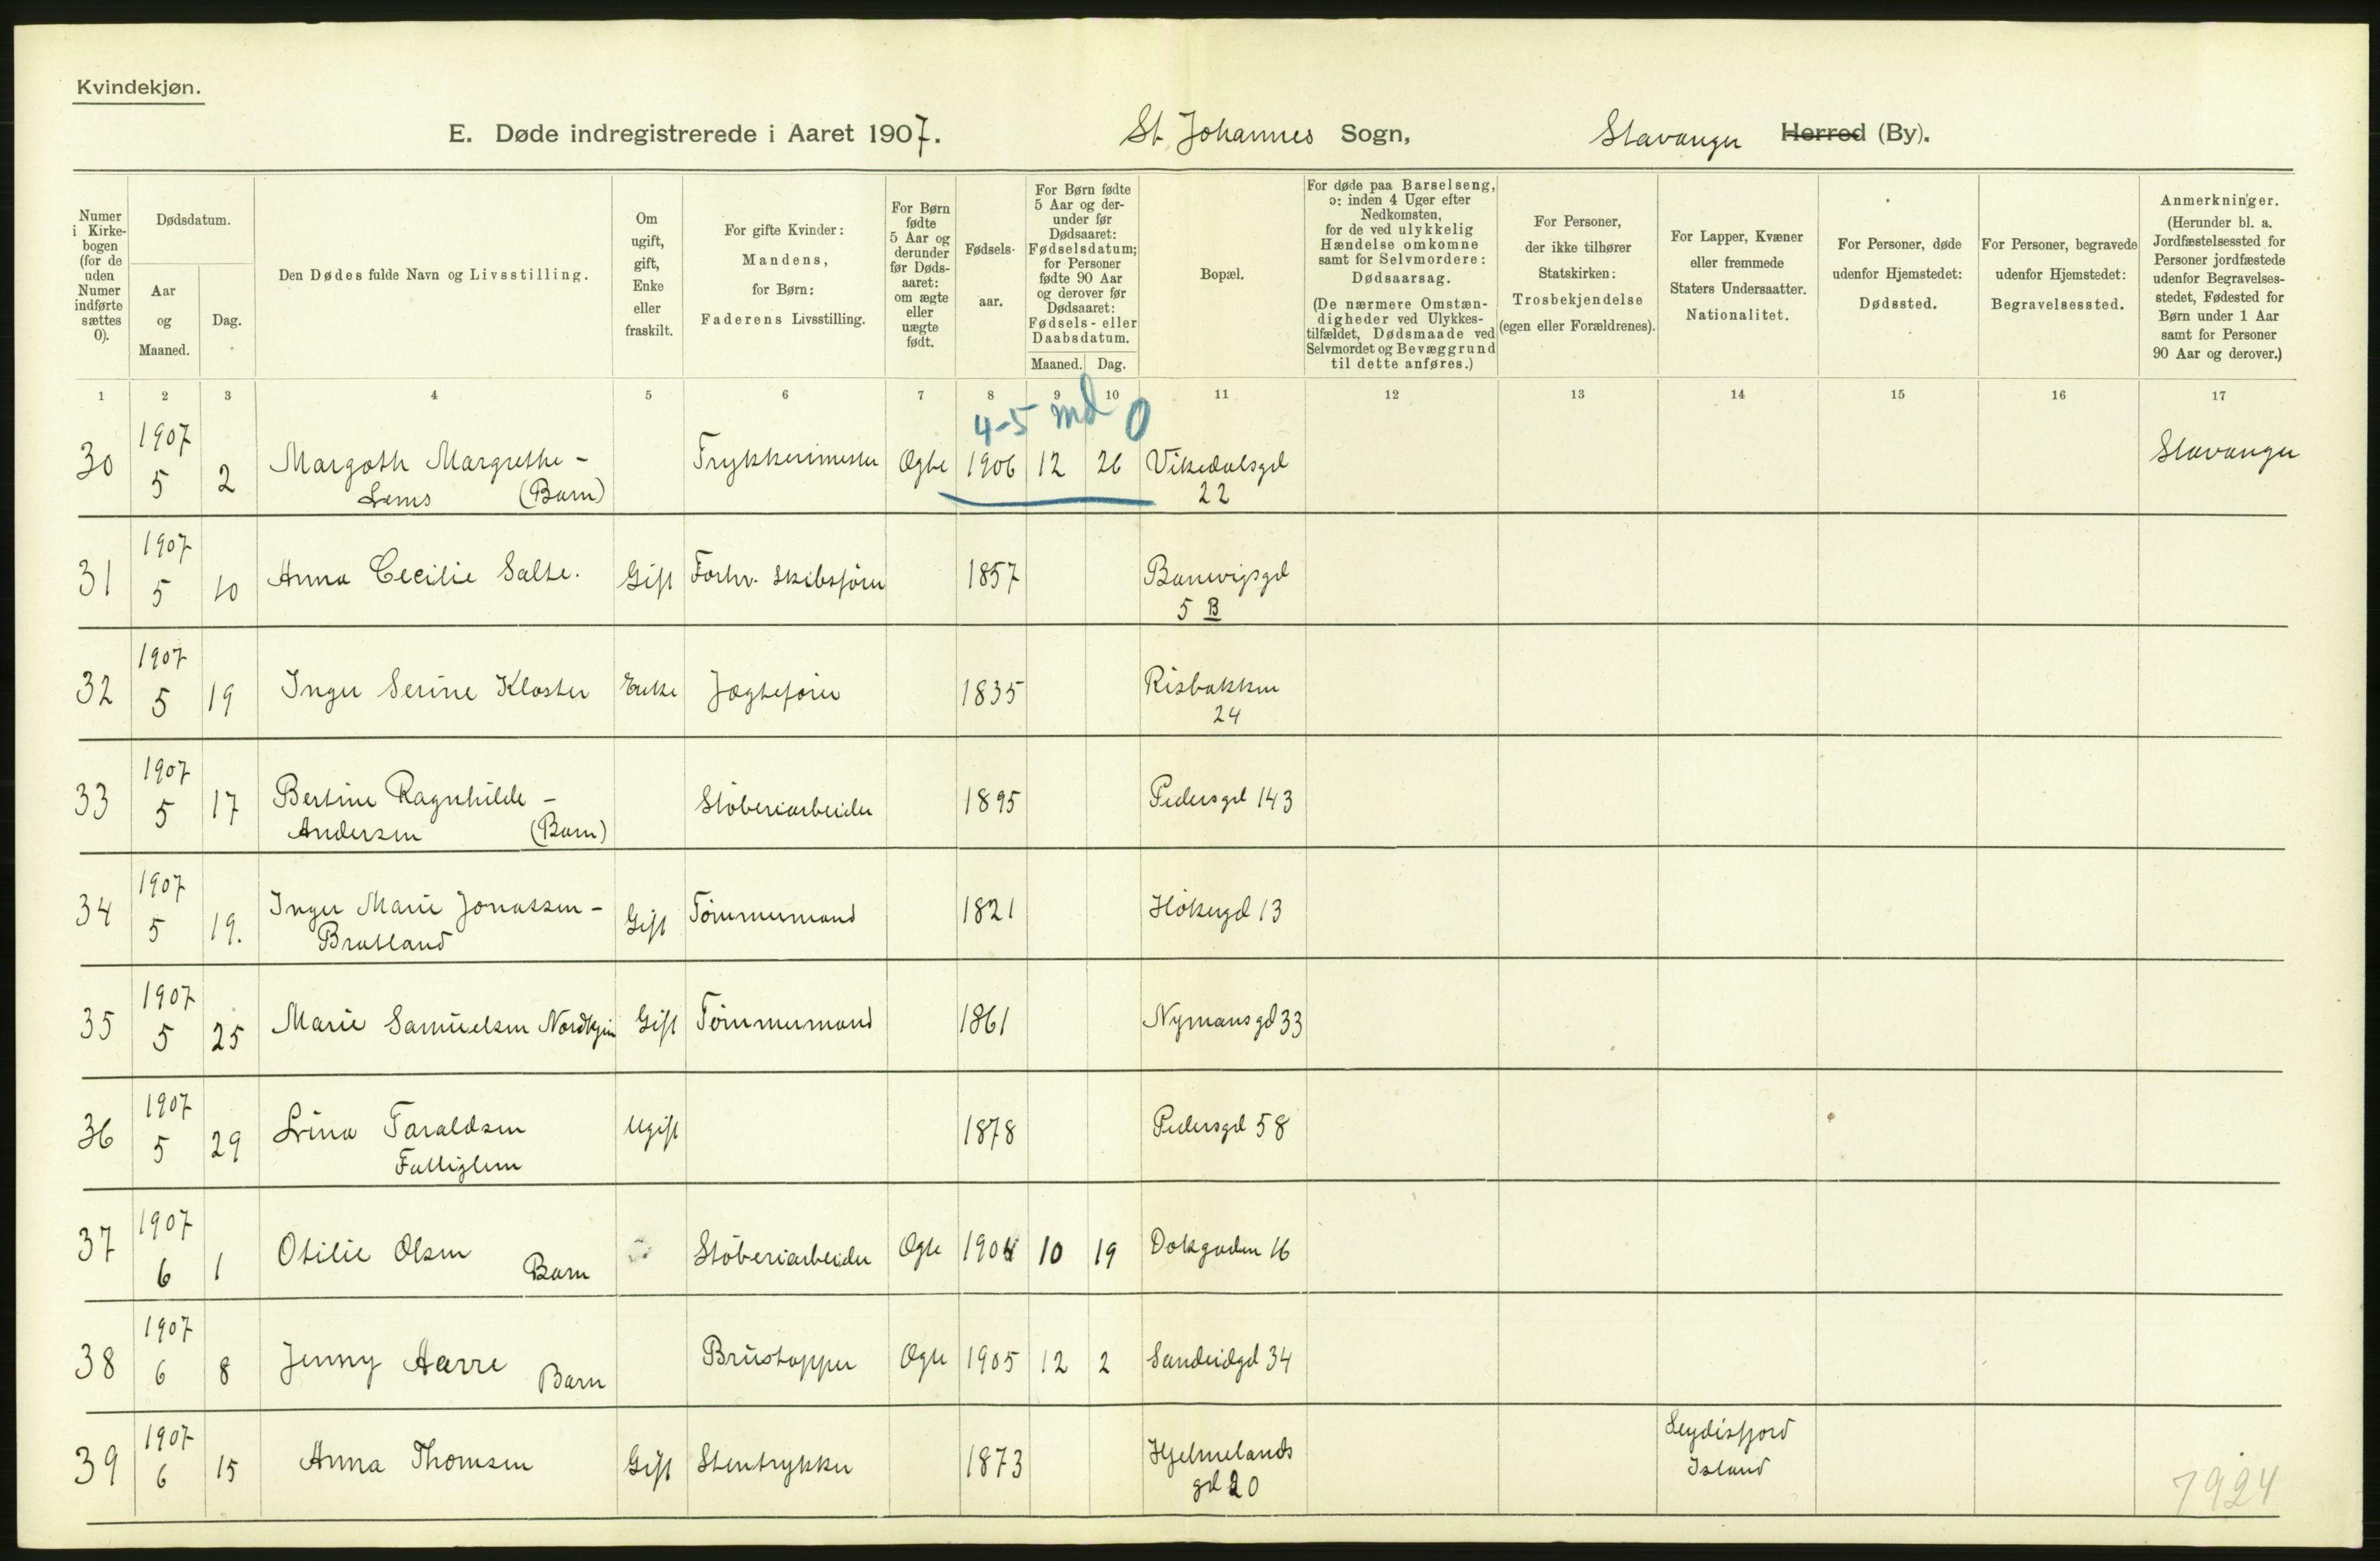 Kvindekjøn.
E. Døde indregistrerede i Aaret 1907. St. Johannes Sogn, Stavanger Herred (By).
Numer i Kirkebogen (for de uden Numer indførte sættes 0).
Dødsdatum.
Aar og Maaned.
Dag.
Den Dødes fulde Navn og Livsstilling.
Om ugift, gift, Enke eller fraskilt.
For gifte Kvinder: Mandens, for Børn: Faderens Livsstilling.
For Børn fødte 5 Aar og derunder før Dødsaaret: om ægte eller uægte født.
Fødselsaar.
For Børn fødte 5 Aar og derunder før Dødsaaret: Fødselsdatum; for Personer fødte 90 Aar og derover før Dødsaaret: Fødsels- eller Daabsdatum.
Maaned. Dag.
Bopæl.
For døde paa Barselseng, ɔ: inden 4 Uger efter Nedkomsten, for de ved ulykkelig Hændelse omkomne samt for Selvmordere: Dødsaarsag. (De nærmere Omstændigheder ved Ulykkestilfældet, Dødsmaade ved Selvmordet og Bevæggrund til dette anføres.)
For Personer, der ikke tilhører Statskirken: Trosbekjendelse (egen eller Forældrenes).
For Lapper, Kvæner eller fremmede Staters Undersaatter. Nationalitet.
For Personer, døde udenfor Hjemstedet: Dødssted.
For Personer, begravede udenfor Hjemstedet: Begravelsessted.
Anmerkninger. (Herunder bl. a. Jordfæstelsessted for Personer jordfæstede udenfor Begravelsesstedet, Fødested for Børn under 1 Aar samt for Personer 90 Aar og derover.)
1 2 3 4 5 6 7 8 9 10 11 12 13 14 15 16 17
4-5 md 0
30 1907 5 2 Margoth Margrethe - Lems (Barn) Trykkerimester Ægte 1906 12 26 Vikedalsgd 22 Stavanger
31 1907 5 10 Anna Cecilie Salte. Gift Forhv. Skibsfører 1857 Banevigsgd 5 B
32 1907 5 19 Inger Serine Kloster Enke Jægtefører 1835 Risbakken 24
33 1907 5 17 Bertine Ragnhilde - Andersen (Barn) Støberiarbeider 1895 Pedersgd 143
34 1907 5 19. Inger Marie Jonassen - Bratland Gift Tømmermand 1821 Høkergd 13
35 1907 5 25 Marie Samuelsen Gift Tømmermand 1861 Nymansgd 33
36 1907 5 29 Lina Taraldsen Fattiglem Ugift 1878 Pedersgd 58
37 1907 6 1 Otilie Olsen Barn Støberiarbeider Ægte 1904 10 19 Dokgaden 16
38 1907 6 8 Jenny Aarre Barn Brustapper Ægte 1905 12 2 Sandeidgd 34
39 1907 6 15 Anna Thomsen Gift Stentrykker 1873 Hjelmelands gd 20 Seydisfjord Island
7924